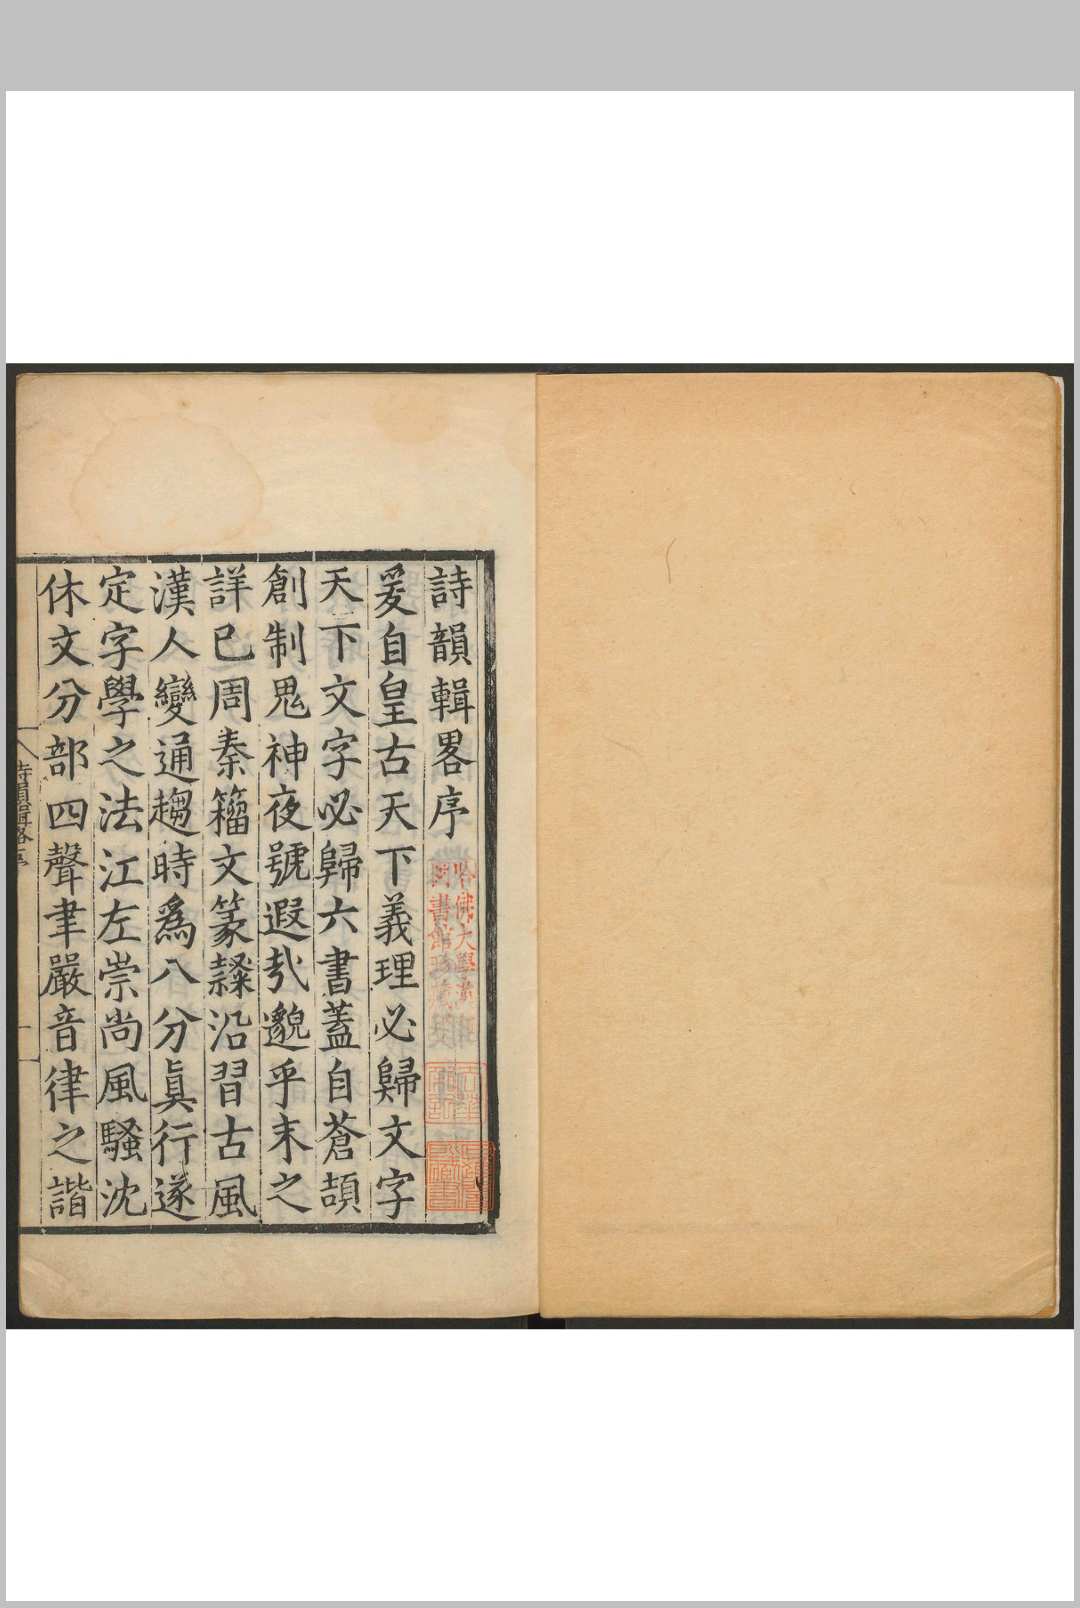 詩韻輯畧序
爰自皇古天下義理必歸文字
天下文字必歸六書蓋自蒼頡
創制鬼神夜號遐㢤邈乎末之
詳已周秦籀文篆隸沿習古風
漢人變通趨時爲八分眞行遂
定字學之法江左崇尚風騷沈
休文分部四聲聿嚴音律之諧
詩韻輯畧序
一
哈佛大學漢
圖書館珍藏